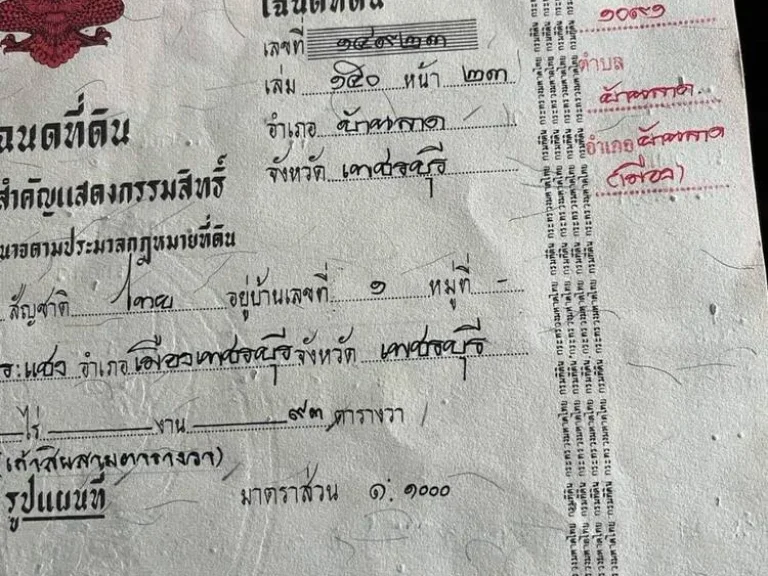 โฉนดที่ดิน
เลขที่ ๑๔๙๒๓
เล่ม ๑๕๐ หน้า ๒๓
อำเภอ บ้านลาด
จังหวัด เพชรบุรี
๑๐๙๑
ตำบล
บ้านลาด
อำเภอ บ้านลาด
(เมือง)
ฉนดที่ดิน
สำคัญแสดงกรรมสิทธิ์
นาจตามประมวลกฎหมายที่ดิน
สัญชาติ ไทย อยู่บ้านเลขที่ ๑ หมู่ที่ -
อำเภอ เมืองเพชรบุรี จังหวัด เพชรบุรี
ไร่ งาน ๙๓ ตารางวา
(เก้าสิบสามตารางวา)
รูปแผนที่ มาตราส่วน ๑:๑๐๐๐